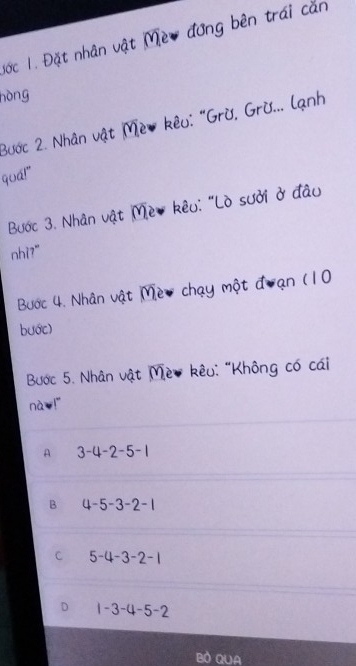 ước 1. Đặt nhân vật Mèo đứng bên trái căn
hòng
Bước 2. Nhân vật Mèo kêu: "Grừ, Grừ... lạnh
quá!"
Bước 3. Nhân vật Mèo kêu: "Lò sưởi ở đâu
nhỉ?"
Bước 4. Nhân vật Mèo chạy một đoạn (10
bước)
Bước 5. Nhân vật Mèo kêu: "Không có cái
nào!"
A 3-4-2-5-1
B 4-5-3-2-1
C 5-4-3-2-1
D 1-3-4-5-2
BỎ QUA